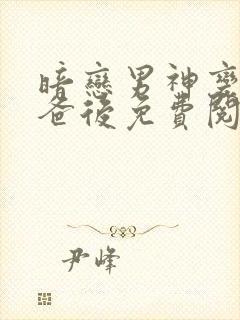 暗戀男神變
爸後免費閱
尹峰